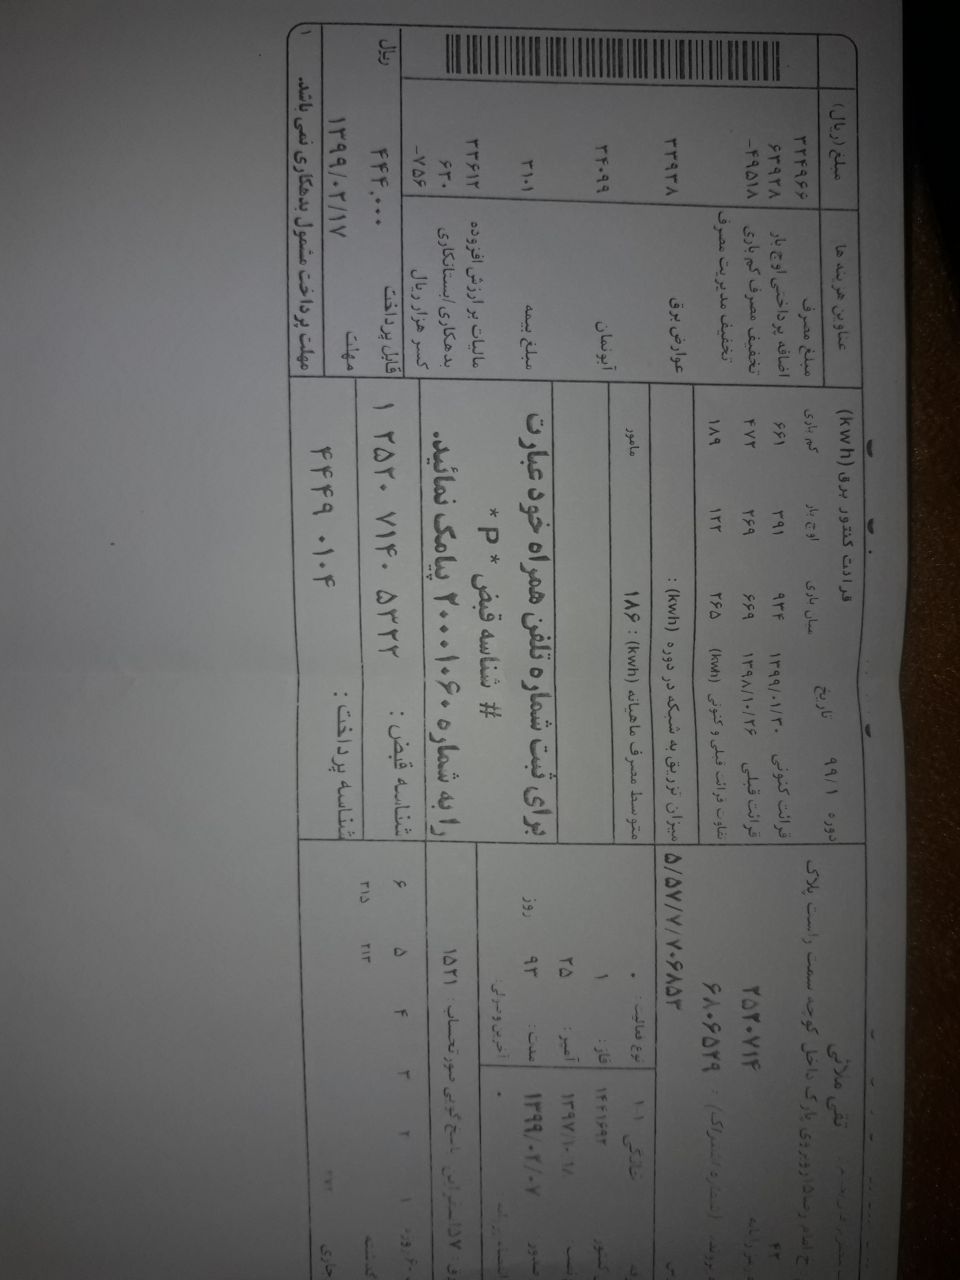 دوره ۹۹/۱ تاریخ
قرائت کنتور برق (kwh)
میان باری اوج بار کم باری
قرائت کنونی ۱۳۹۹/۰۱/۳۰ ۹۳۴ ۳۹۱ ۶۶۱
قرائت قبلی ۱۳۹۸/۱۰/۲۶ ۶۶۹ ۲۶۹ ۴۷۲
تفاوت قرائت قبلی و کنونی (kwh) ۲۶۵ ۱۲۲ ۱۸۹
میزان تزریق به شبکه در دوره (kwh) :
متوسط مصرف ماهیانه (kwh) : ۱۸۶ مامور
برای ثبت شماره تلفن همراه خود عبارت
# شناسه قبض * P *
را به شماره ۲۰۰۰۱۰۶۰ پیامک نمائید.
شناسه قبض : ۱ ۲۵۲۰ ۷۱۴۰ ۵۳۲۲
شناسه پرداخت : ۴۴۴۹ ۰۱۰۴
عناوین هزینه ها مبلغ (ریال)
مبلغ مصرف ۳۲۴۹۶۶
اضافه پرداختی اوج بار ۶۳۹۲۸
تخفیف مصرف کم باری -۴۹۵۱۸
تخفیف مدیریت مصرف
عوارض برق ۳۳۹۳۸
آبونمان ۳۴۰۹۹
مبلغ بیمه ۳۱۰۱
مالیات بر ارزش افزوده ۳۳۶۱۲
بدهکاری/بستانکاری ۶۳۰
کسر هزار ریال -۷۵۶
قابل پرداخت ۴۴۴.۰۰۰ ریال
مهلت ۱۳۹۹/۰۲/۱۷
مهلت پرداخت مشمول بدهکاری نمی باشد.
۱
تقی ملائی
روبروی پارک داخل کوچه سمت راست پلاک
۲۵۲۰۷۱۴
۶۸۰۶۵۲۹
۵/۵۷/۷/۷۰۶۸۵۳
خانگی ۱-۱ نوع فعالیت : ۰
۱۴۴۱۶۹۲ فاز : ۱
آمپر : ۲۵
۱۳۹۹/۰۲/۰۷ مدت : ۹۳ روز
پاسخ گویی صورتحساب : ۱۵۲۱
۱ ۲ ۳ ۴ ۵ ۶
۲۱۳ ۲۱۵
جاری